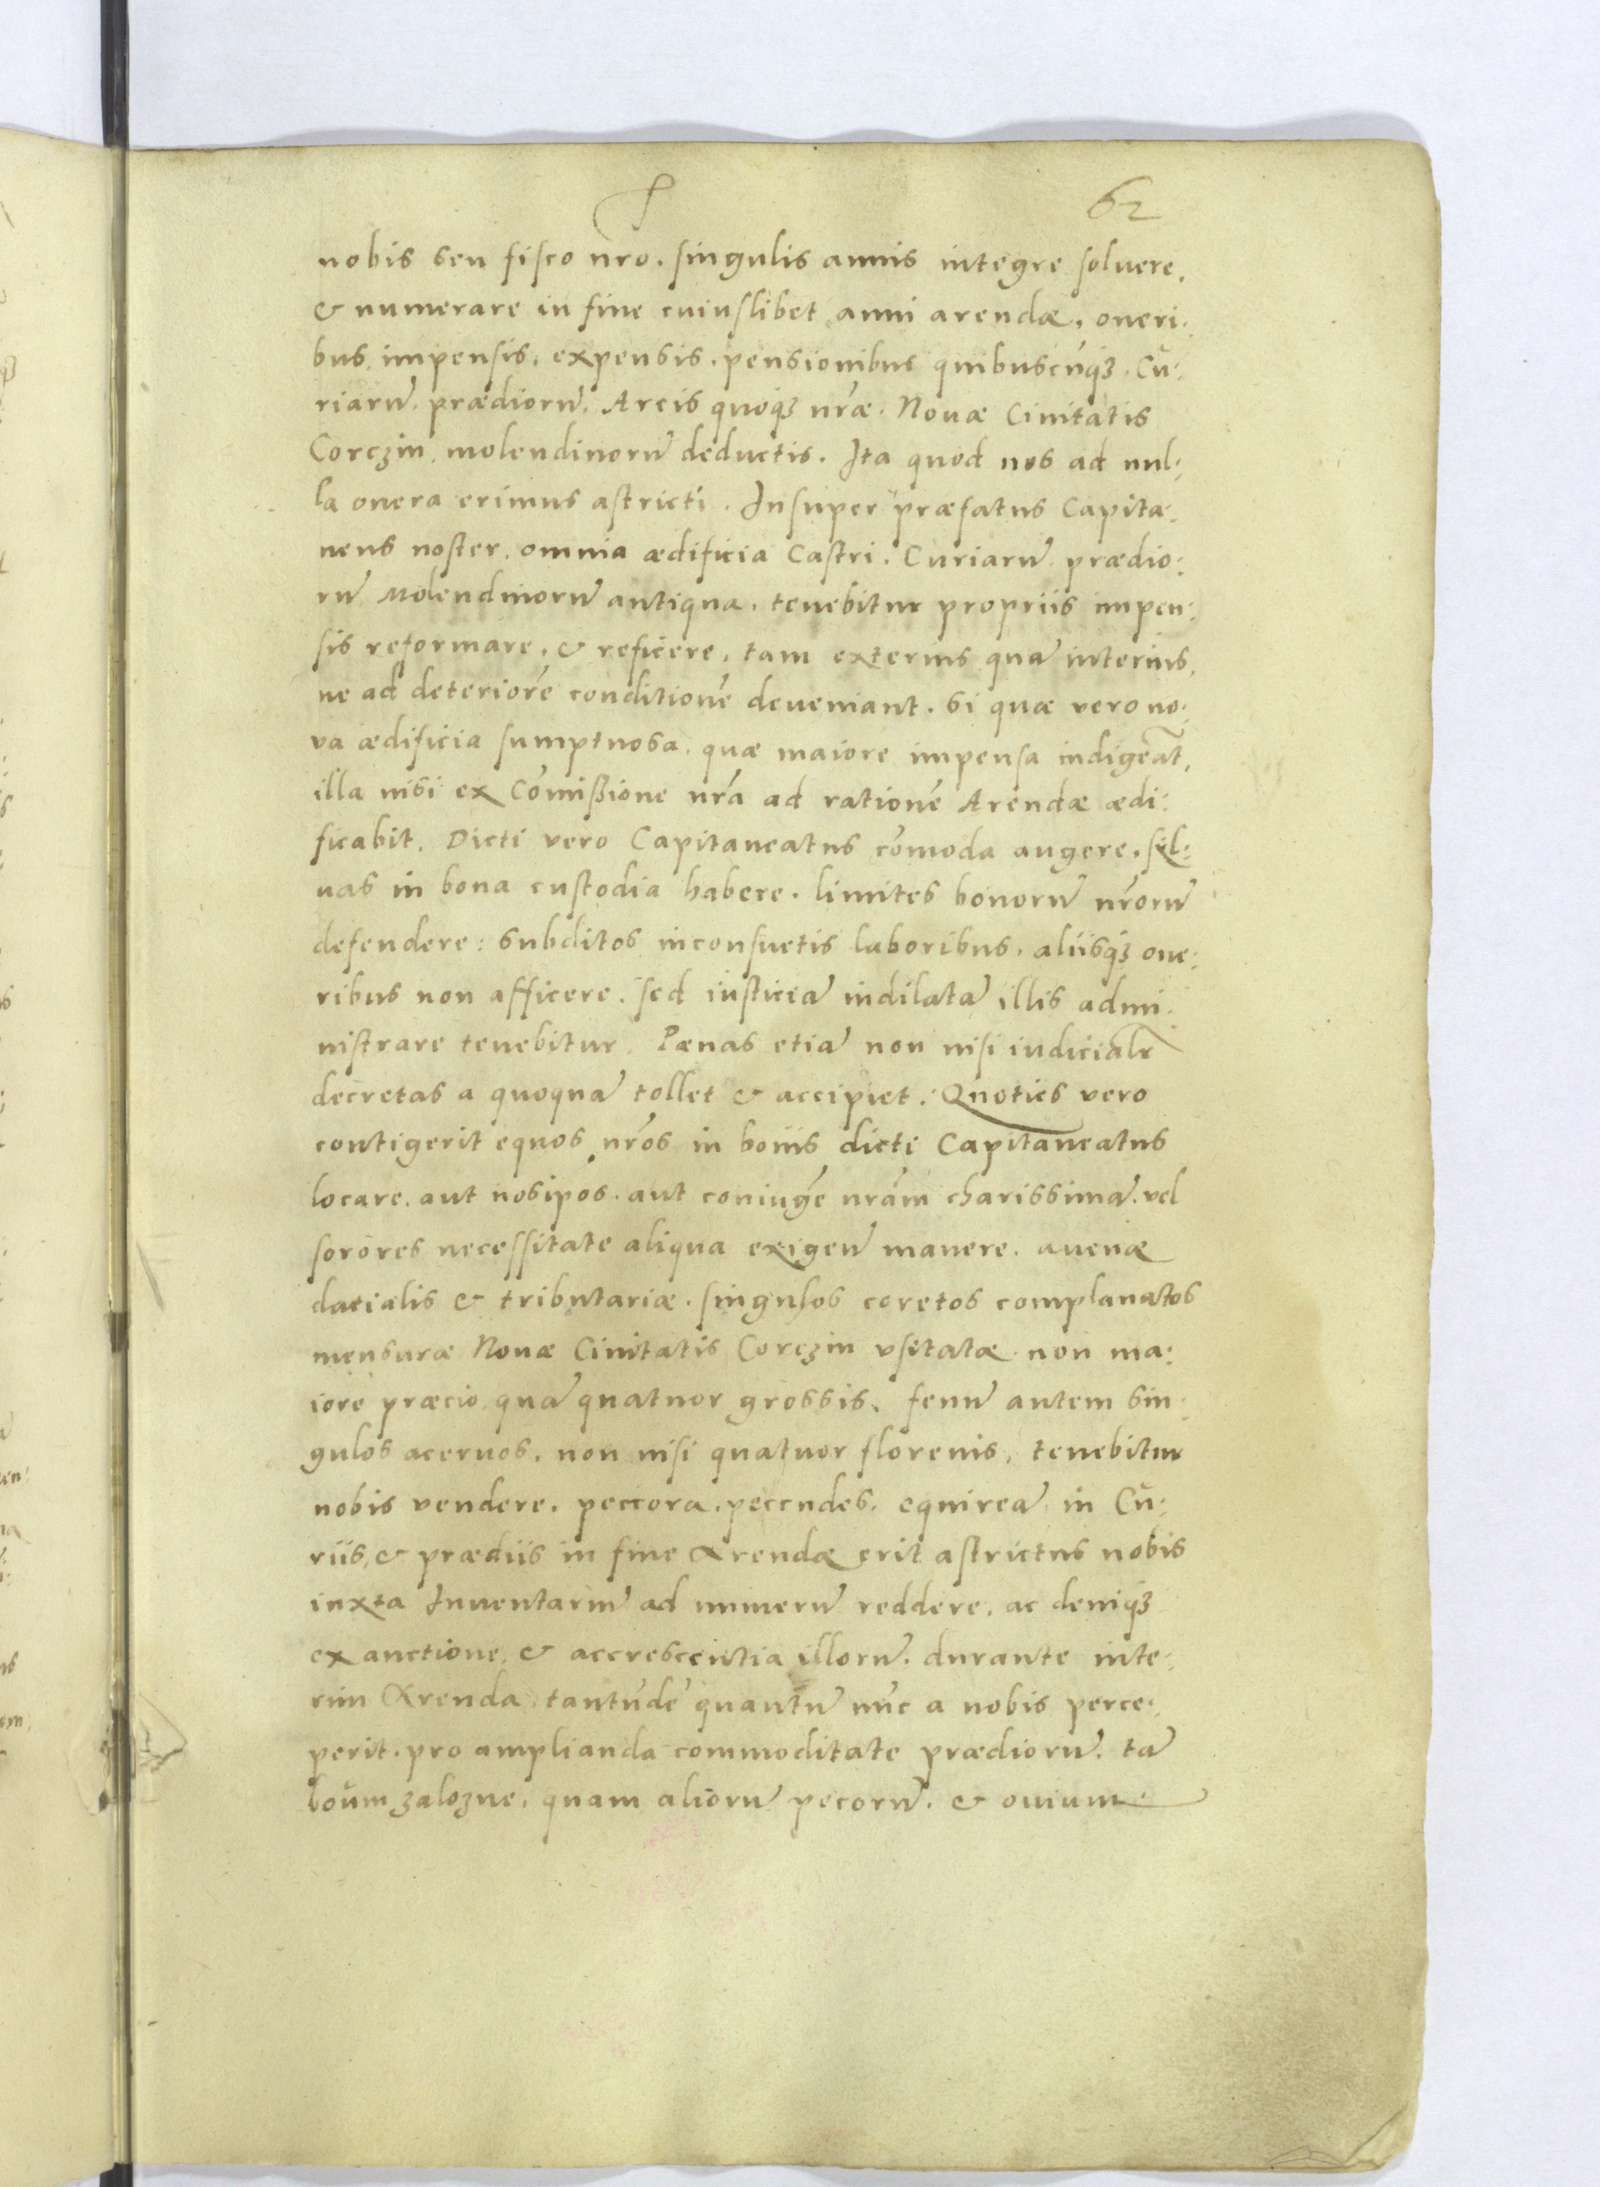 62
nobis seu fisco nro. singulis annis integre soluere,
& numerare in fine cuiuslibet anni arendæ, oneri:
bus, impensis, expensis, pensionibus quibuscũqꝫ. Cu:
riarũ, prædiorũ, Arcis quoqꝫ nræ. Nouæ Ciuitatis
Corczin, molendinorũ deductis. Ita quod nos ad nul:
la onera erimus astricti. Insuper præfatus Capita:
neus noster, omnia ædificia Castri. Curiarũ prædio:
rũ Molendinorũ antiqua, tenebitur propriis impen:
sis reformare, & reficere, tam exterius quã interius,
ne ad deteriorẽ conditionẽ deueniant. Si quæ vero no:
ua ædificia sumptuosa, quæ maiore impensa indigeãt,
illa nisi ex Cõmißione nrã ad rationẽ Arendæ ædi:
ficabit. Dicti vero Capitaneatus cõmoda augere, sil:
uas in bona custodia habere. limites bonorũ nrõrũ
defendere: Subditos inconsuetis laboribus, aliisqꝫ one:
ribus non afficere. sed iusticiã indilatã illis admi:
nistrare tenebitur. Pænas etiã non nisi iudicialr̃
decretas a quoquã tollet & accipiet. Quoties vero
contigerit equos nr̃os in bonis dicti Capitaneatus
locare, aut nosip̃os. aut coniugẽ nrãm charissimã. vel
sorores necessitate aliqua exigen̄ manere. auenæ
dacialis & tributariæ. singulos coretos complanatos
mensuræ Nouæ Ciuitatis Corczin vsitatæ non ma:
iore præcio quã quatuor grossis. fenũ autem sin:
gulos aceruos, non nisi quatuor florenis, tenebitur
nobis vendere. peccora, pecudes, equireã in Cu:
riis, & prædiis in fine Arendæ erit astrictus nobis
iuxta Inuentariũ ad numerũ reddere, ac deniqꝫ
ex auctione, & accrescẽntia illorũ. durante inte:
rim Arenda, tantũdẽ quantũ nũc a nobis perce:
perit. pro amplianda commoditate prædiorũ. tã
boum zalozne, quam aliorũ pecorũ. & ouium